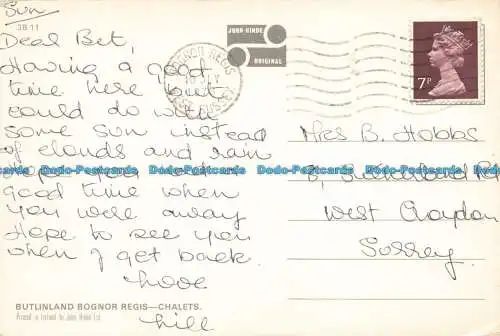 Sun
3B.11
Dear Bet,
Having a good
time here but
could do with
some sun instead
of clouds and rain
good time when
you were away
Hope to see you
when I get back.
Love
Lill
JOHN HINDE
ORIGINAL
BOGNOR REGIS
7P
Mrs B. Hobbs
West Croydon
Surrey
Dodo-Postcards Dodo-Postcards Dodo-Postcards Dodo-Postcards Dodo-Postcards
BUTLINLAND BOGNOR REGIS—CHALETS.
Printed in Ireland by John Hinde Ltd.